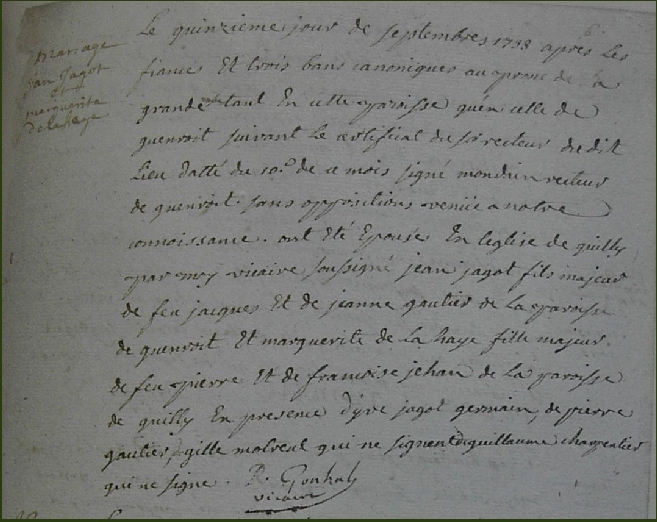 mariage
jan jagot
et
marguerite
delahaye
Le quinzieme jour de septembres 1733 après Les
fiances Et trois bans canoniques au prone de la
grande messe tant En cette paroisse quen celle de
guenroit suivant Le certificat du sr recteur du dit
Lieu datté du 10e de ce mois signé mondain recteur
de guenroit. sans oppositions venüe a notre
connoissance. ont Eté Epousés En leglise de quilly
par moy vicaire soussigné jean jagot fils majeur
de feu jacques Et de jeanne gautier de La paroisse
de guenroit Et marguerite de La haye fille majeur.
de feu pierre Et de francoise jehan de La paroisse
de quilly En presence dyve jagot germain, de pierre
gautier, gille molreul qui ne signent Et guillaume charpentier
qui ne signe. P.
vicaire